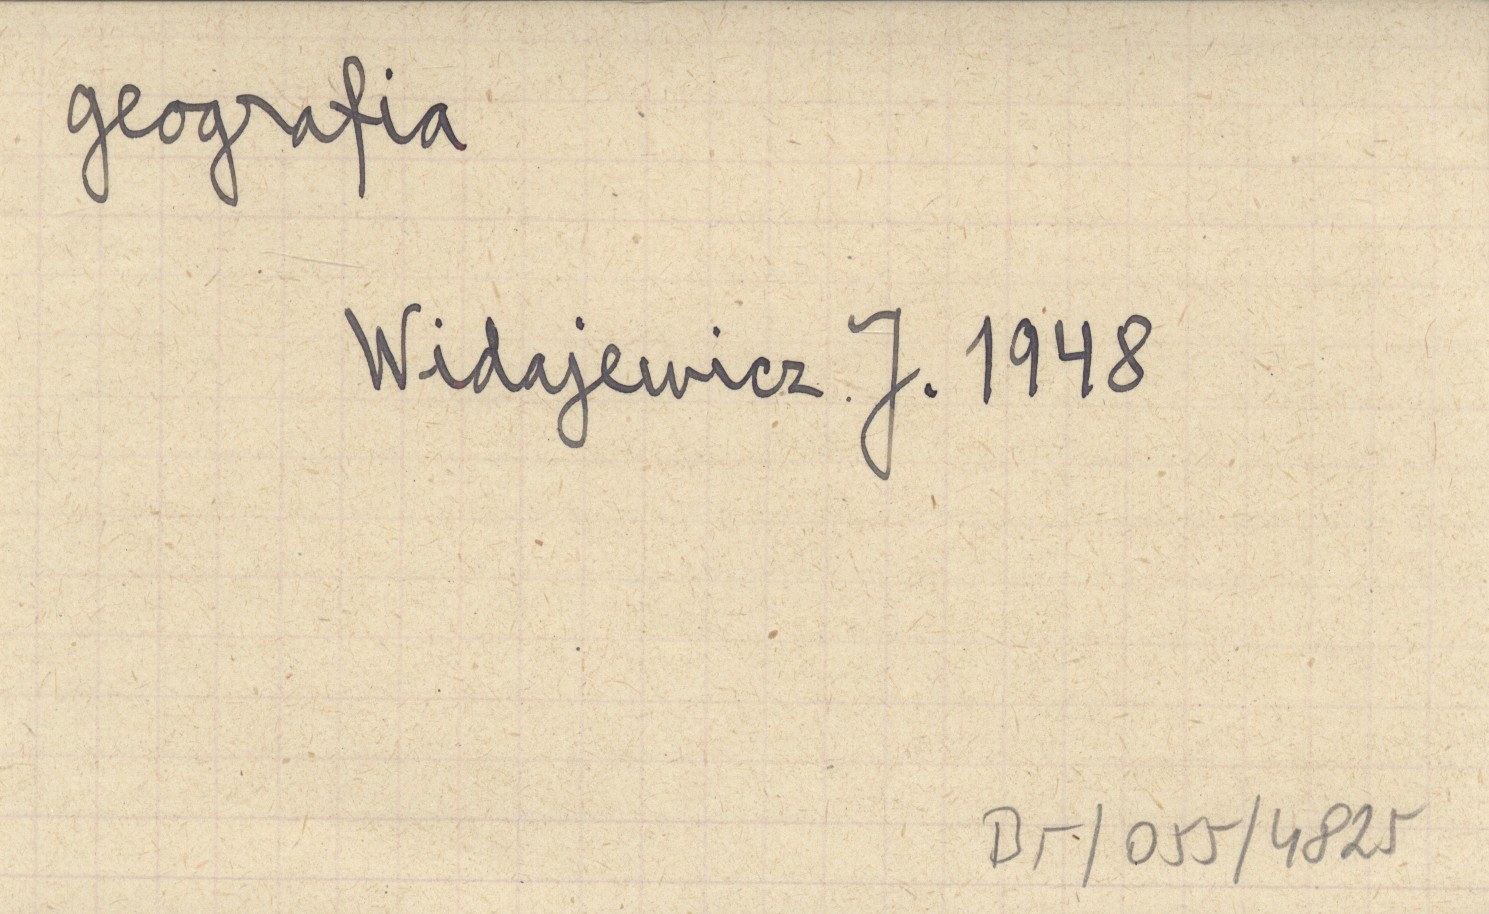 geografia
Widajewicz J. 1948
Br/055/4825